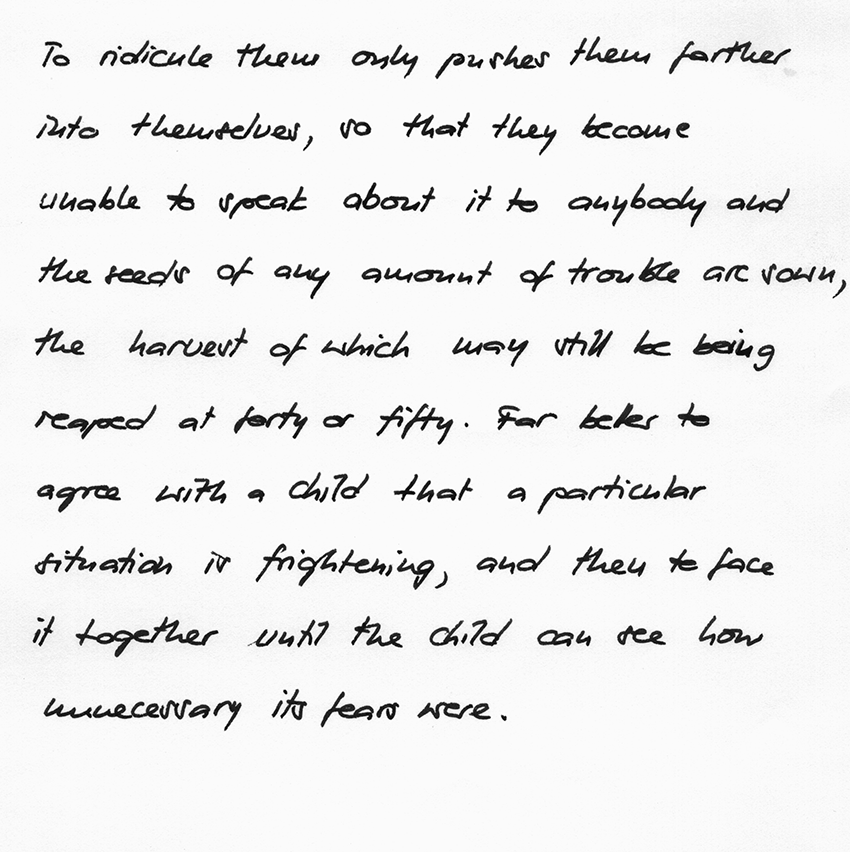 To ridicule them only pushes them farther
into themselves, so that they become
unable to speak about it to anybody and
the seeds of any amount of trouble are sown,
the harvest of which may still be being
reaped at forty or fifty. Far better to
agree with a child that a particular
situation is frightening, and then to face
it together until the child can see how
unnecessary its fears were.